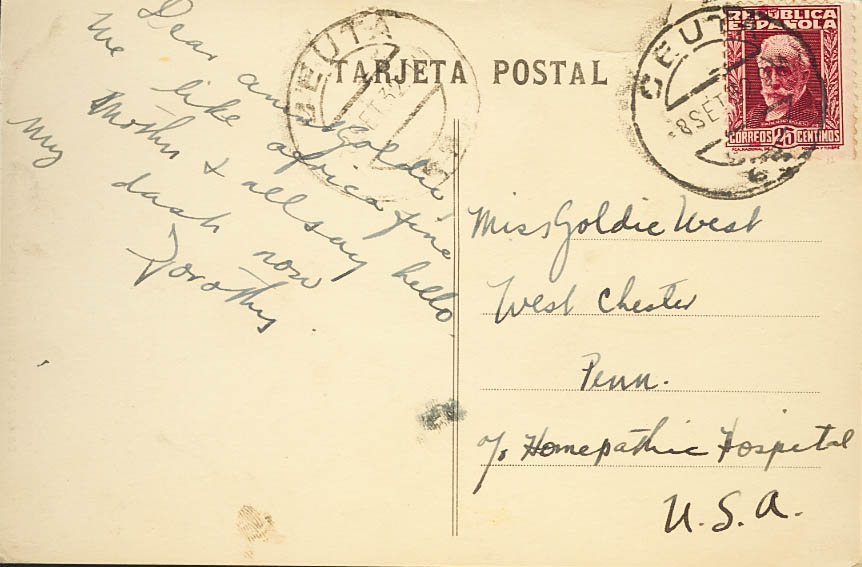 TARJETA POSTAL
CEUTA
SET 32
CEUTA
-8 SET 32
REPÚBLICA
ESPAÑOLA
CORREOS 25 CENTIMOS
Dear aunt Goldie,
We like africa fine
Mother & all say hello.
My dash now
Dorothy.
Miss Goldie West
West Chester
Penn.
℅ Homepathic Hospital
U.S.A.